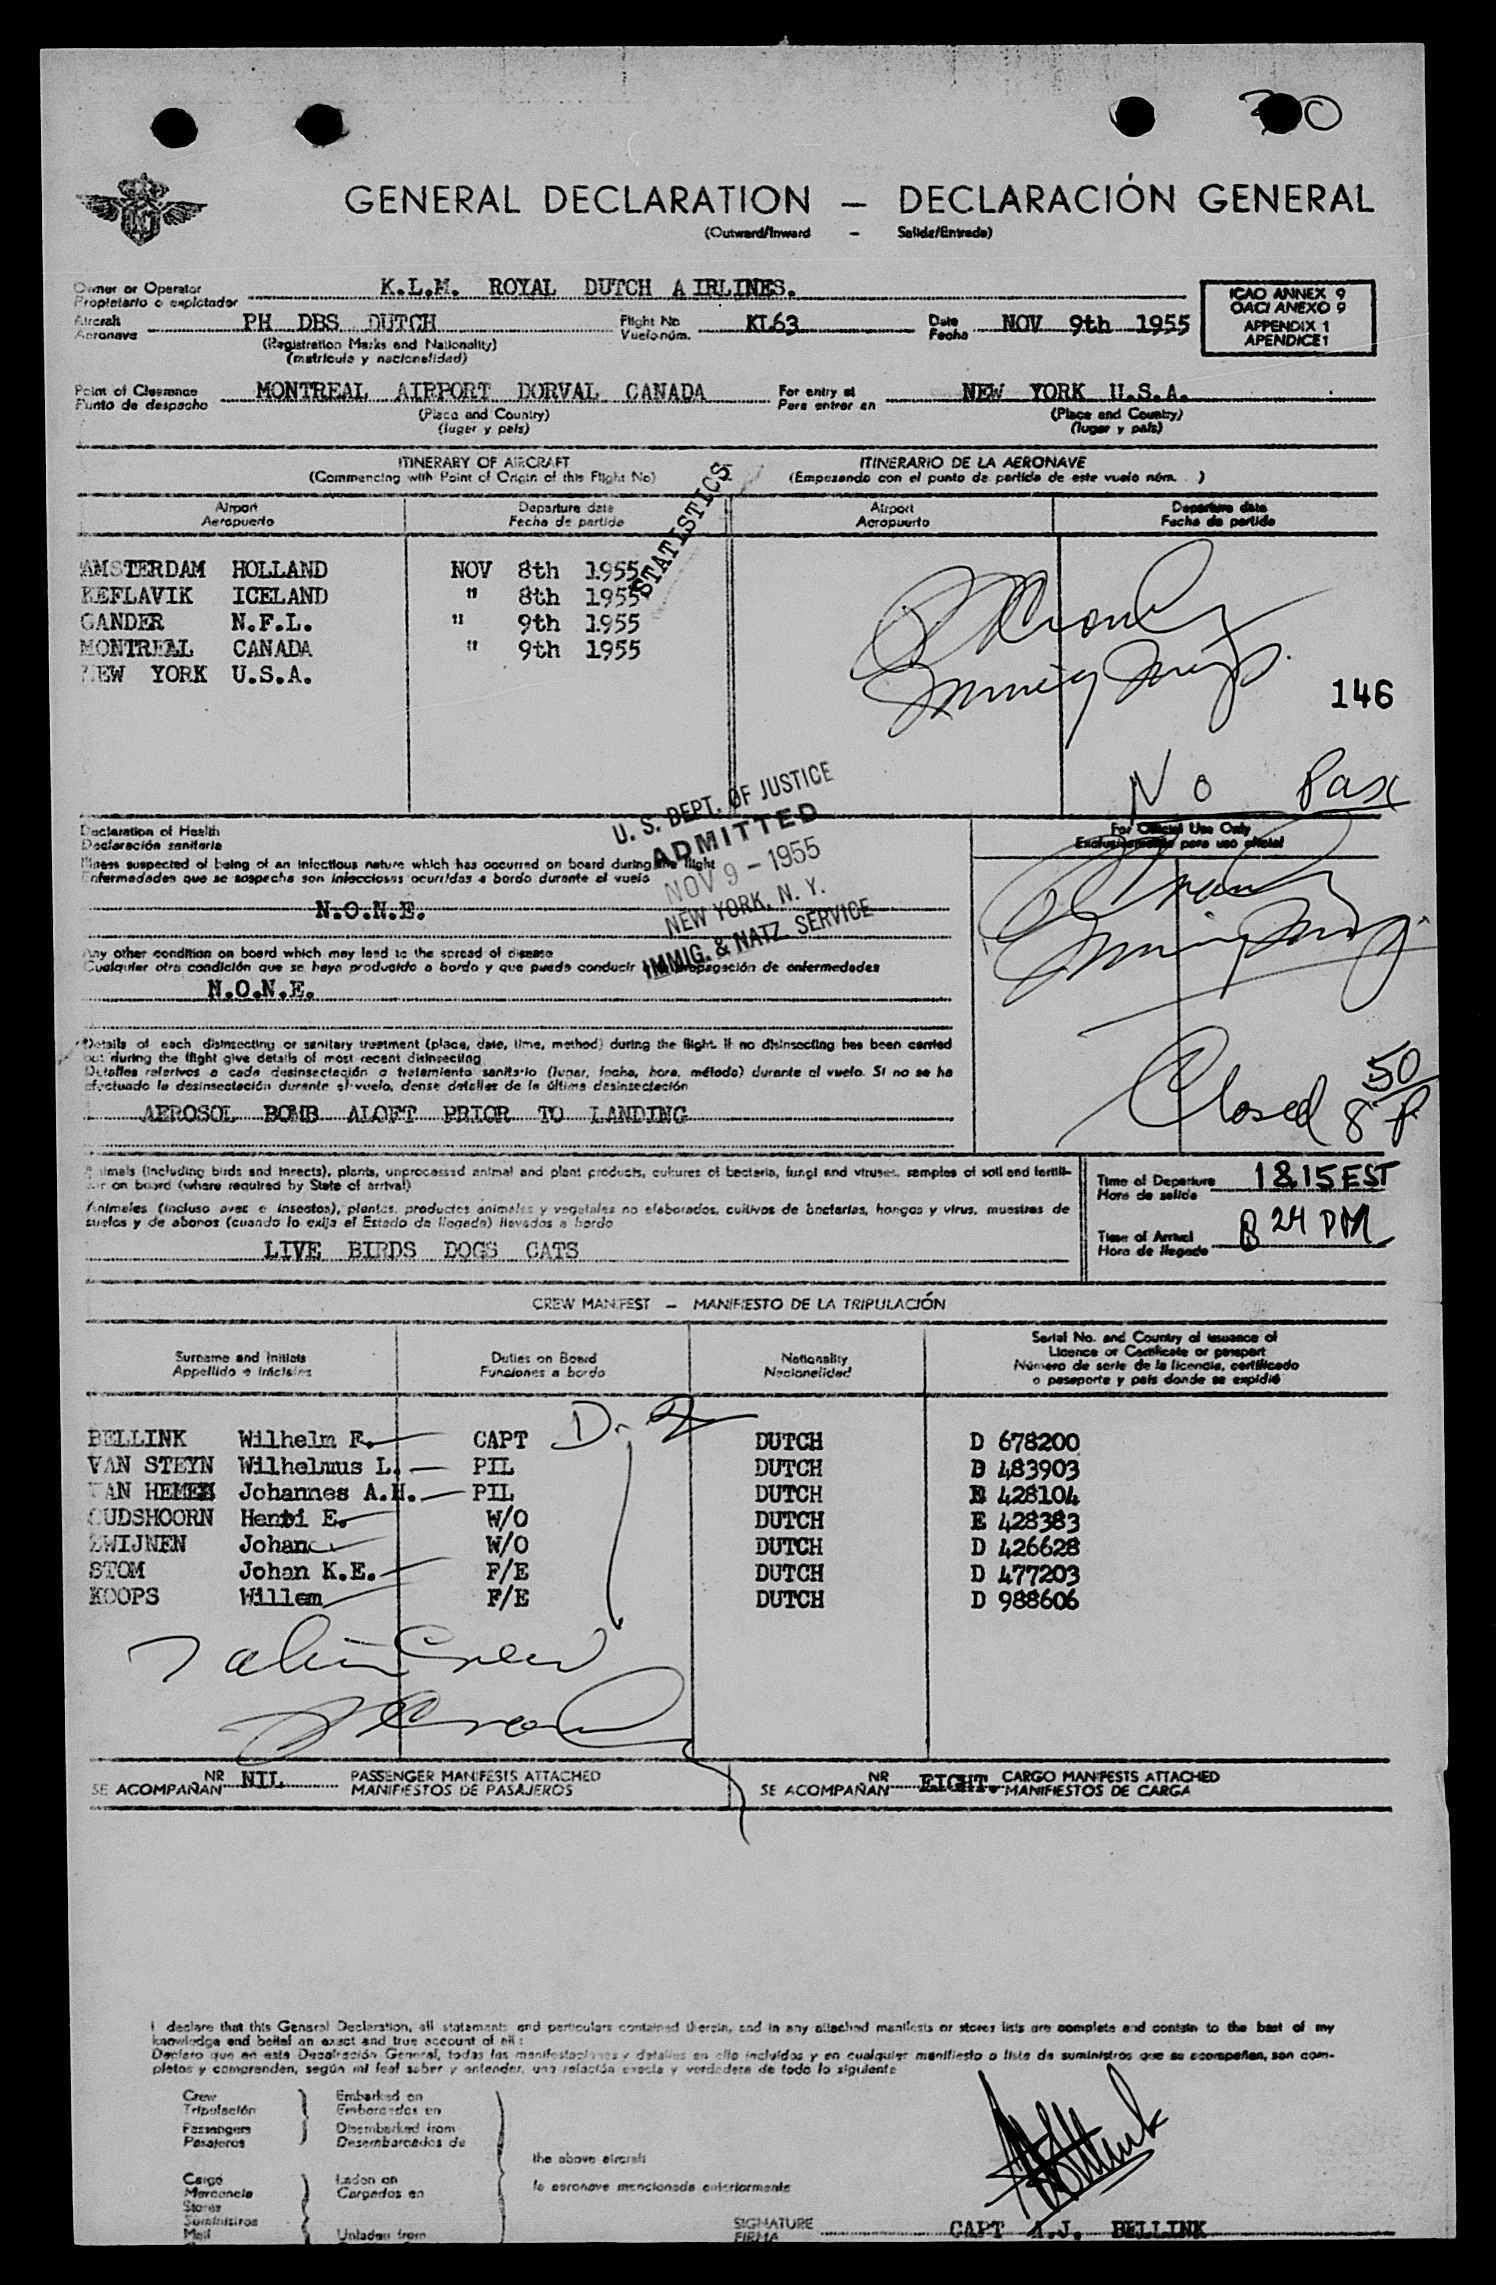 GENERAL DECLARATION – DECLARACIÓN GENERAL
(Outward/Inward – Salida/Entrada)
Owner or Operator K.L.M. ROYAL DUTCH AIRLINES.
Propietario o explotador
ICAO ANNEX 9
OACI ANEXO 9
APPENDIX 1
APENDICE 1
Aircraft PH DBS DUTCH Flight No KL63 Date NOV 9th 1955
Aeronave Vuelo núm. Fecha
(Registration Marks and Nationality)
(matricula y nacionalidad)
Point of Clearance MONTREAL AIRPORT DORVAL CANADA For entry at NEW YORK U.S.A.
Punto de despacho Para entrar en
(Place and Country) (Place and Country)
(lugar y pais) (lugar y pais)
ITINERARY OF AIRCRAFT ITINERARIO DE LA AERONAVE
(Commencing with Point of Origin of this Flight No) (Empezando con el punto de partida de este vuelo núm. )
STATISTICS
Airport Departure date Airport Departure date
Aeropuerto Fecha de partida Aeropuerto Fecha de partida
AMSTERDAM HOLLAND NOV 8th 1955
KEFLAVIK ICELAND " 8th 1955
GANDER N.F.L. " 9th 1955
MONTREAL CANADA " 9th 1955
NEW YORK U.S.A.
146
No Pax
U. S. DEPT. OF JUSTICE
ADMITTED
NOV 9 - 1955
NEW YORK, N. Y.
IMMIG. & NATZ. SERVICE
Declaration of Health
Declaración sanitaria
For Official Use Only
Exclusivamente para uso oficial
Illness suspected of being of an infectious nature which has occurred on board during the flight
Enfermedades que se sospecha son infecciosas ocurridas a bordo durante el vuelo
N.O.N.E.
Any other condition on board which may lead to the spread of disease
Cualquier otra condición que se haya producido a bordo y que puede conducir a la propagación de enfermedades
N.O.N.E.
Details of each disinsecting or sanitary treatment (place, date, time, method) during the flight. If no disinsecting has been carried
out during the flight give details of most recent disinsecting
Detalles relativos a cada desinsectación o tratamiento sanitario (lugar, fecha, hora, método) durante el vuelo. Si no se ha
efectuado la desinsectación durante el vuelo, dense detalles de la última desinsectación
AEROSOL BOMB ALOFT PRIOR TO LANDING
Closed 8 50 P
Animals (including birds and insects), plants, unprocessed animal and plant products, cultures of bacteria, fungi and viruses, samples of soil and fertili-
zer on board (where required by State of arrival)
Animales (incluso aves e insectos), plantas, productos animales y vegetales no elaborados, cultivos de bacterias, hongos y virus, muestras de
suelos y de abonos (cuando lo exija el Estado de llegada) llevados a bordo
LIVE BIRDS DOGS CATS
Time of Departure 1815 EST
Hora de salida
Time of Arrival 8 24 PM
Hora de llegada
CREW MANIFEST – MANIFIESTO DE LA TRIPULACIÓN
Surname and Initials Duties on Board Nationality Serial No. and Country of issuance of
Licence or Certificate or passport
Appellido e iniciales Funciones a bordo Nacionalidad Número de serie de la licencia, certificado
o pasaporte y pais donde se expidió
BELLINK Wilhelm F. CAPT DUTCH D 678200
VAN STEYN Wilhelmus L. PIL DUTCH D 483903
VAN HEMEN Johannes A.H. PIL DUTCH E 428104
OUDSHOORN Henri E. W/O DUTCH E 428383
ZWIJNEN Johan W/O DUTCH D 426628
STOM Johan K.E. F/E DUTCH D 477203
KOOPS Willem F/E DUTCH D 988606
7 in Crew
NR NIL PASSENGER MANIFESTS ATTACHED NR EIGHT. CARGO MANIFESTS ATTACHED
SE ACOMPAÑAN MANIFIESTOS DE PASAJEROS SE ACOMPAÑAN MANIFIESTOS DE CARGA
I declare that this General Declaration, all statements and particulars contained therein, and in any attached manifests or stores lists are complete and contain to the best of my
knowledge and belief an exact and true account of all :
Declaro que en esta Decalración General, todas las manifestaciones y detalles en ella incluidos y en cualquier manifiesto o lista de suministros que se acompañan, son com-
pletos y comprenden, según mi leal saber y entender, una relación exacta y verdadera de todo lo siguiente
Crew Embarked on
Tripulación Embarcados en
Passengers Disembarked from
Pasajeros Desembarcados de
the above aircraft
Cargo Laden on
Mercancia Cargados en
la aeronave mencionada anteriormente
Stores
Suministros
Mail Unladen from
SIGNATURE CAPT A.J. BELLINK
FIRMA